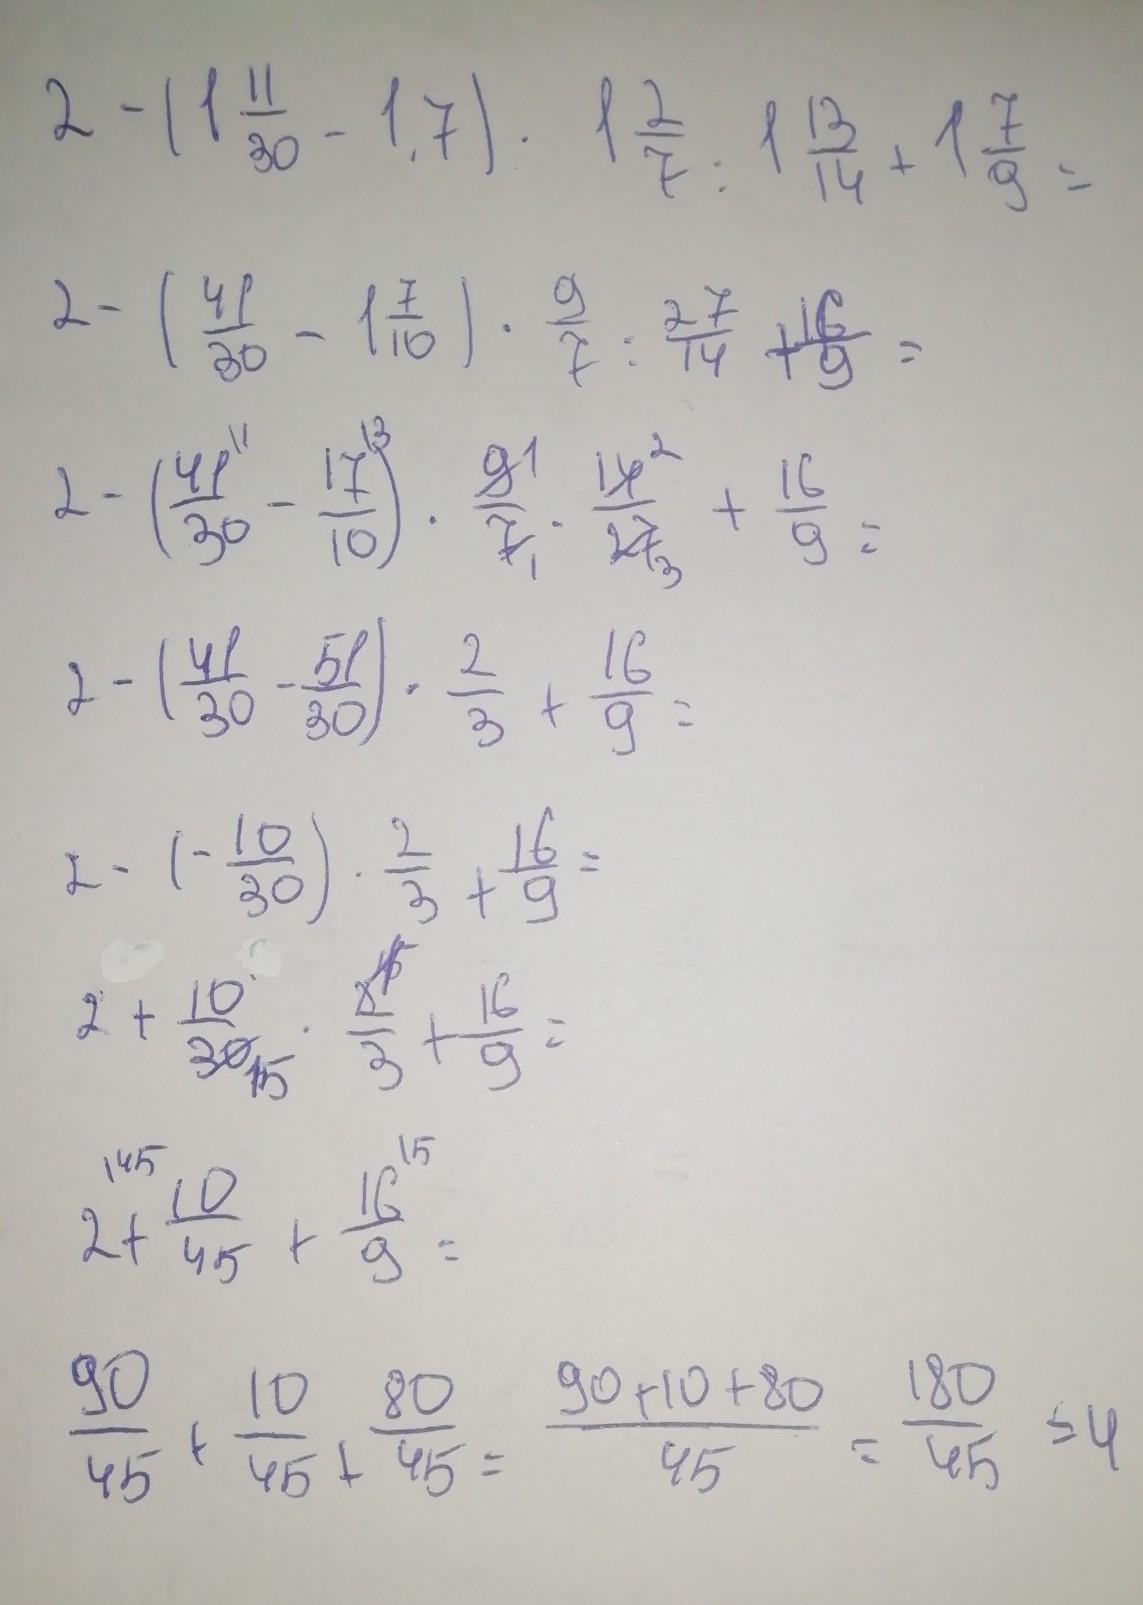 2 - (1 11/30 - 1,7) · 1 2/7 : 1 13/14 + 1 7/9 =
2 - (41/30 - 1 7/10) · 9/7 : 27/14 + 16/9 =
2 - (41/30 ^11 - 17/10 ^13) · 9/7 ^1 _1 · 14/27 ^2 _3 + 16/9 =
2 - (41/30 - 51/30) · 2/3 + 16/9 =
2 - (- 10/30) · 2/3 + 16/9 =
2 + 10/30 _15 · 2/3 + 16/9 =
2 ^145 + 10/45 + 16/9 ^15 =
90/45 + 10/45 + 80/45 = 90+10+80/45 = 180/45 = 4